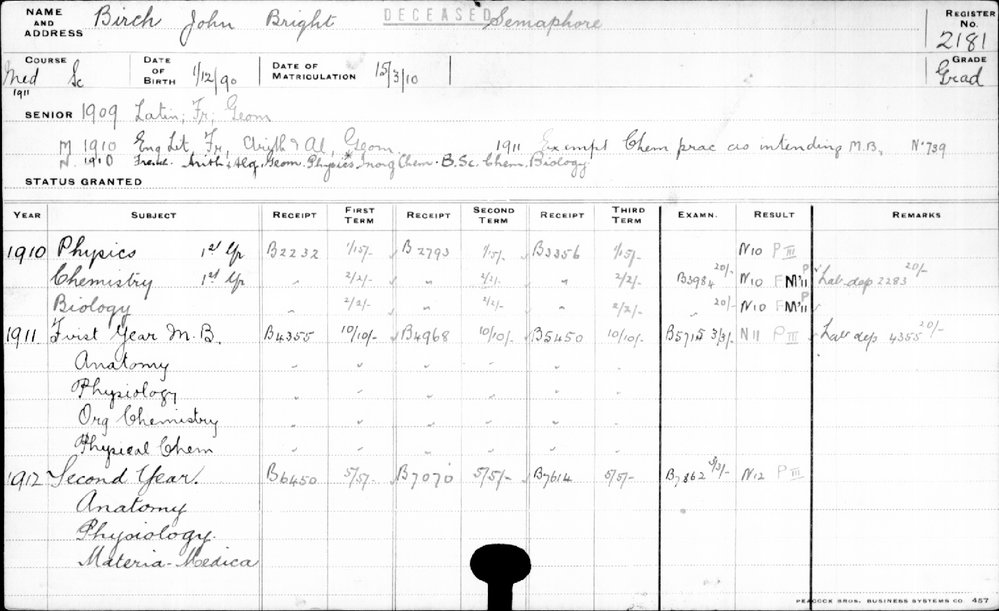 NAME AND ADDRESS Birch John Bright DECEASED Semaphore REGISTER No. 2181
COURSE Med Sc 1911 DATE OF BIRTH 1/12/90 DATE OF MATRICULATION 15/3/10 GRADE Grad
SENIOR 1909 Latin; Fr; Geom
M 1910 Eng Lit, Fr, Arith & Al, Geom. 1911 Exempt Chem prac as intending M.B. No 739
N. 1910 French. Arith & Alg. Geom. Physics Inorg Chem. B.Sc. Chem, Biology
STATUS GRANTED
YEAR SUBJECT RECEIPT FIRST TERM RECEIPT SECOND TERM RECEIPT THIRD TERM EXAMN. RESULT REMARKS
1910 Physics 1st Yr B2232 1/15/- B2793 1/15/- B3356 1/15/- N10 P III
Chemistry 1st Yr " 2/2/- " 2/2/- " 2/2/- B3984 20/- N10 F M'11 P Lab dep 2283 20/-
Biology " 2/2/- " 2/2/- " 2/2/- " 20/- N10 F M'11 P
1911 First Year M.B. B4355 10/10/- B4968 10/10/- B5450 10/10/- B5715 3/3/- N11 P III Lab dep 4355 20/-
Anatomy " " " " " "
Physiology " " " " " "
Org Chemistry " " " " " "
Physical Chem " " " " " "
1912 Second Year. B6450 5/5/- B7070 5/5/- B7614 5/5/- B7862 3/3/- N12 P III
Anatomy
Physiology.
Materia-Medica
PEACOCK BROS. BUSINESS SYSTEMS CO 457